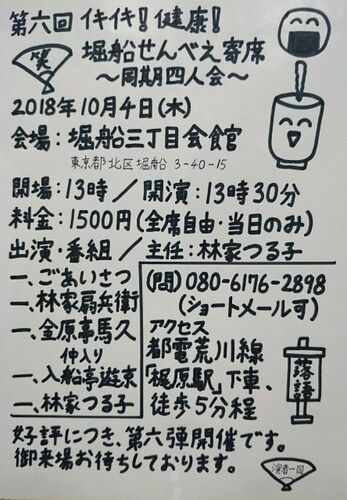 第六回 イキイキ!健康!
笑
堀船せんべえ寄席
〜同期四人会〜
2018年10月4日(木)
会場:堀船三丁目会館
東京都北区堀船 3-40-15
開場:13時/開演:13時30分
料金:1500円(全席自由・当日のみ)
出演・番組/主任:林家つる子
一、ごあいさつ
一、林家扇兵衛
一、金原亭馬久
仲入り
一、入船亭遊京
一、林家つる子
(問)080-6176-2898
(ショートメール可)
アクセス
都電荒川線
「梶原駅」下車、
徒歩5分程
落語
好評につき、第六弾開催です。
御来場お待ちしております。
演者一同